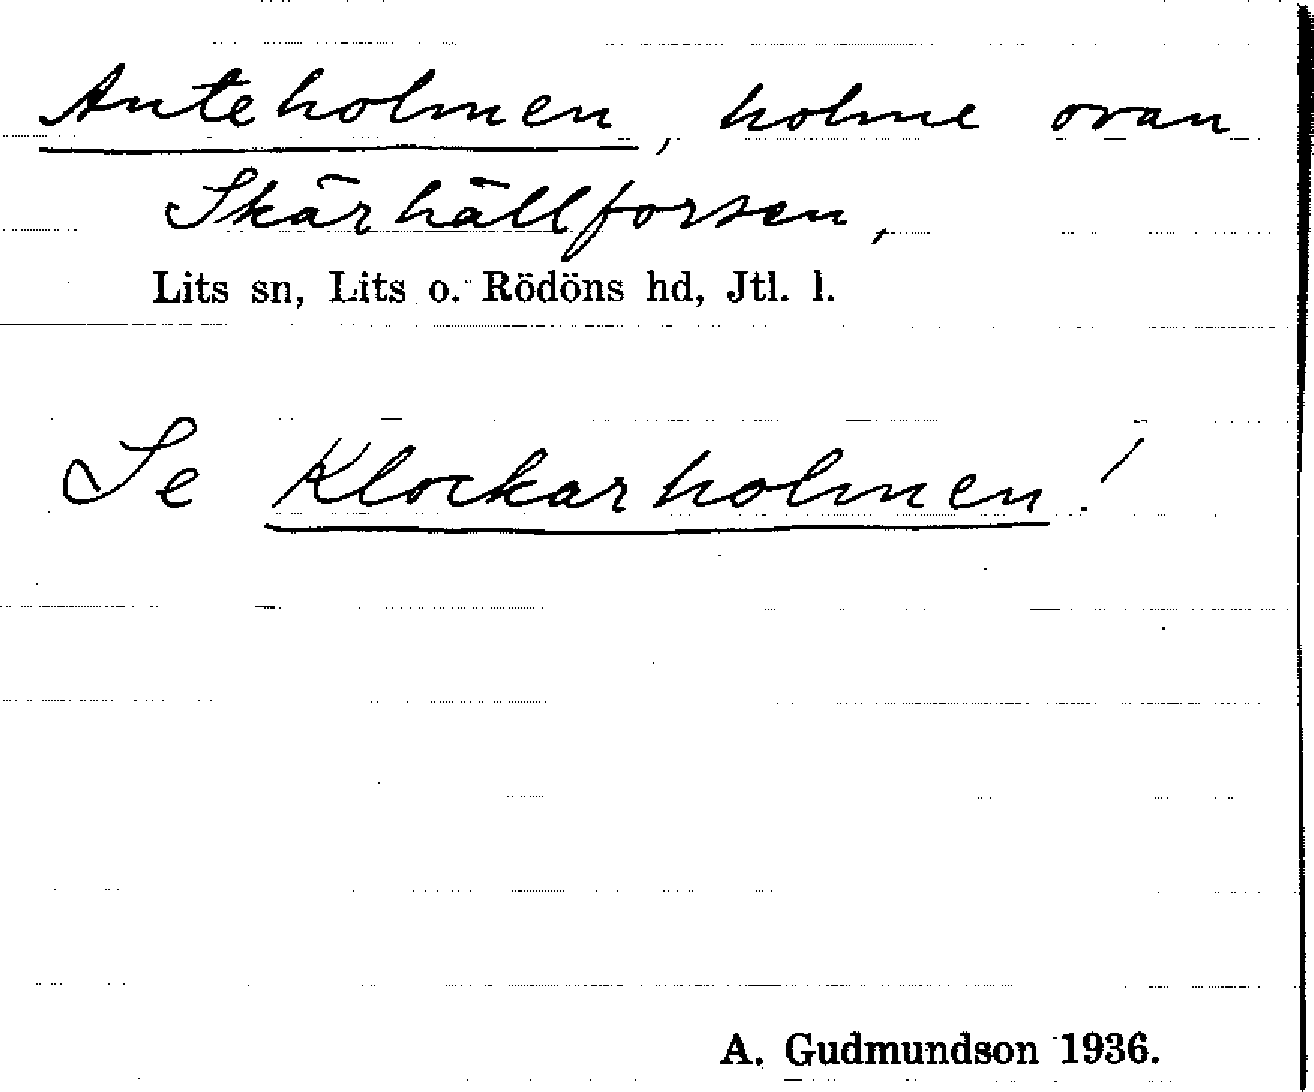 Anteholmen, holme ovan
Skärhällforsen,
Lits sn, Lits o. Rödöns hd, Jtl. l.
Se Klockarholmen!
A. Gudmundson 1936.